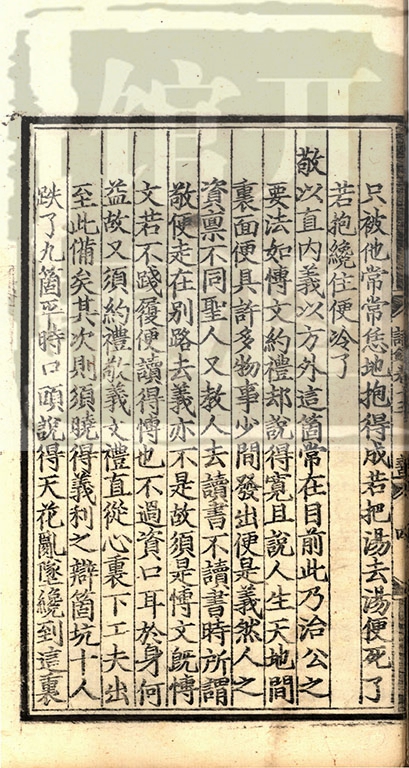 只被他常常恁地抱得成若把湯去湯便死了
若抱纔住便冷了
敬以直内義以方外這箇常在目前此乃治公之
要法如愽文約禮却說得寛且說人生天地間
裏面便具許多物事少間發出便是義然人之
資禀不同聖人又教人去讀書不讀書時所謂
敬便走在别路去義亦不是故須是愽文旣愽
文若不踐履便讀得愽也不過資口耳於身何
益故又須約禮敬義文禮直從心裏下工夫出
至此備矣其次則須曉得義利之辯箇坑十人
跌了九箇平時口頭說得天花亂墜纔到這裏